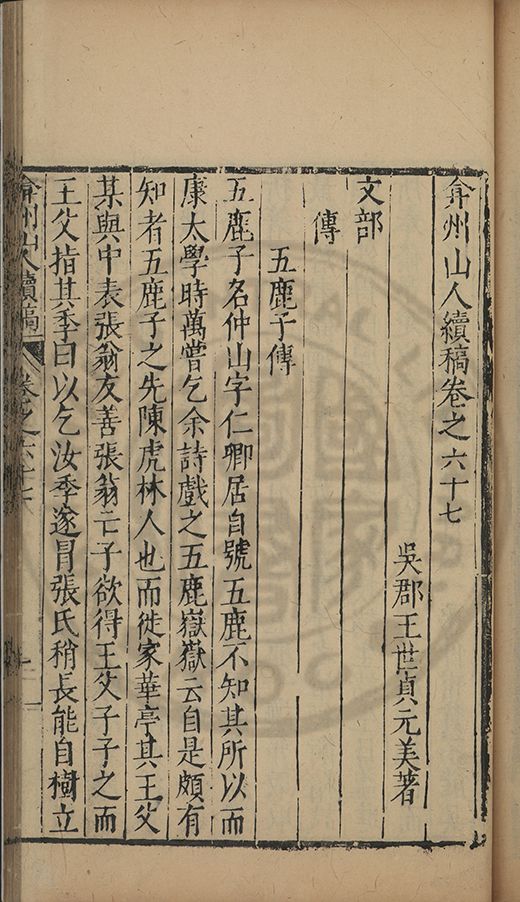 弇州山人續稿卷之六十七
吳郡王世貞元美著
文部
傳
五鹿子傳
五鹿子名仲山字仁卿居自號五鹿不知其所以而
康太學時萬嘗乞余詩戲之五鹿嶽嶽云自是頗有
知者五鹿子之先陳虎林人也而徙家華亭其王父
某與中表張翁友善張翁亡子欲得王父子子之而
王父指其季曰以乞汝季遂冒張氏稍長能自樹立
弇州山人續稿 卷之六十七 一